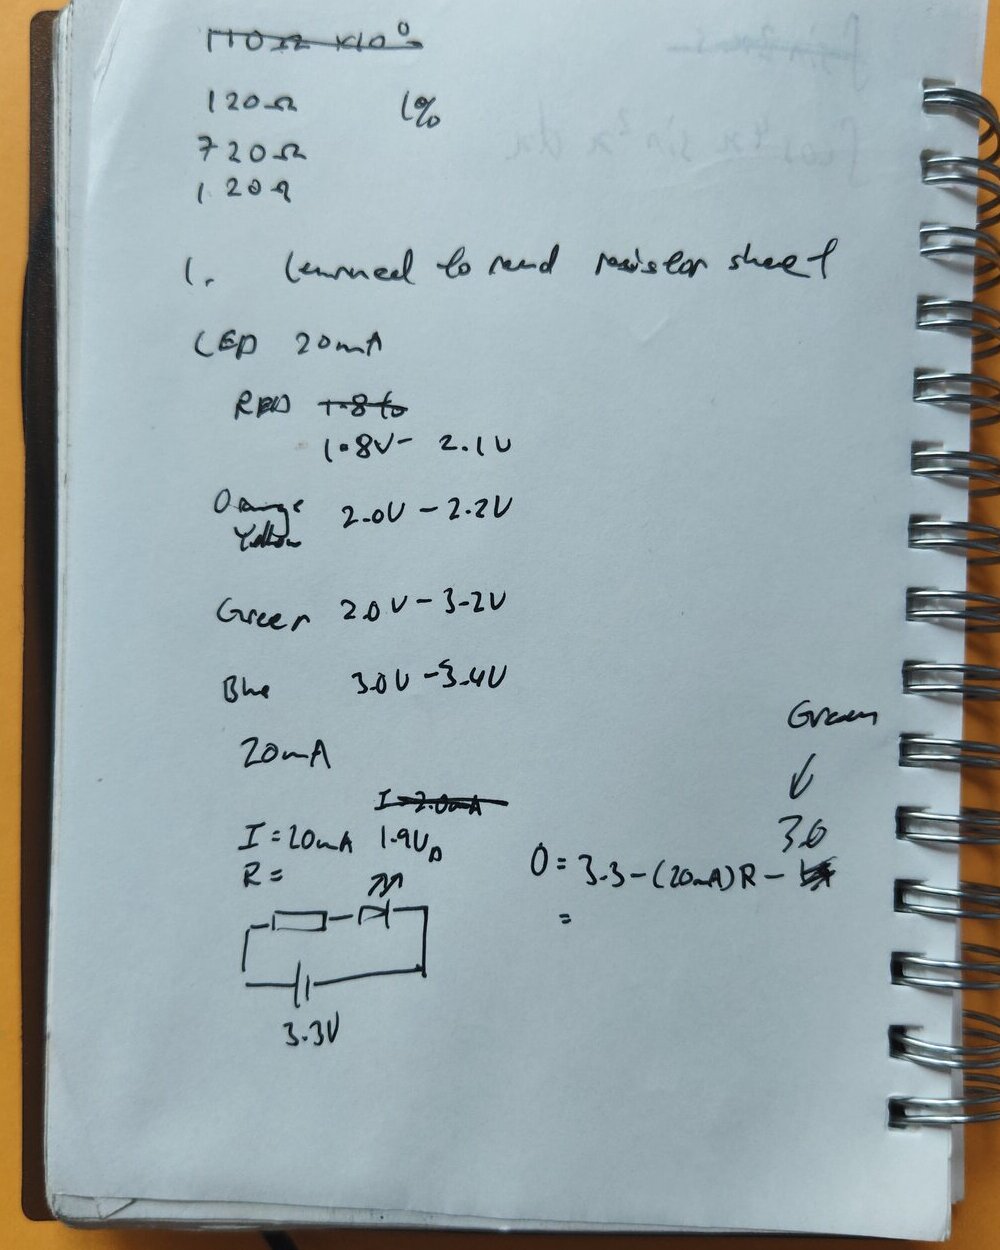 110Ω ×10⁰
120Ω 1%
720Ω
1.20Ω
1. Learned to read resistor sheet
LED 20mA
RED 1.8 to
1.8V- 2.1V
Orange 2.0V - 2.2V
Yellow
Green 2.0V - 3.2V
Blue 3.0V - 3.4V
20mA
I = 2.0mA
I = 20mA 1.9V
R =
3.3V
Green
↓
3.0
0 = 3.3 - (20mA)R -
=